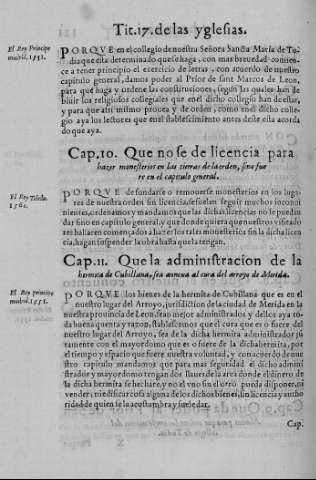 Tit.17. de las yglesias.
El Rey Principe
madrid.1551.
PORQVE en el collegio de nuestra Señora Sancta Maria de Tu-
dia que esta determinado que se haga, con mas breuedad comien-
ce a tener principio el exercicio de letras, con acuerdo de nuestro
capitulo general, damos poder al Prior de sant Marcos de Leon,
para que haga y ordene las constituciones, segun las quales han de
biuir los religiosos collegiales que en el dicho collegio han de estar,
y para que assi mismo prouea y de orden, como en el dicho colle-
gio aya los letores que en el establescimiento antes deste esta acorda
do que aya.
Cap.10. Que no se de licencia para
hazer monesterios en las tierras de la orden, sino fue
re en el capitulo general.
El Rey Toledo.
1560.
PORQVE de fundarse o remouerse monesterios en los luga-
res de nuestra orden sin licencia, se suelen seguir muchos inconui-
nientes, ordenamos y mandamos que las dichas licencias no se puedã
dar sino en capitulo general, y que donde quiera que nuestros visitado
res hallaren començados a hazer los tales monesterios sin la dicha li-
cencia, hagan suspender la obra hasta que la tengan.
Cap.11. Que la administracion de la
hermita de Cubillana, sea annexa al cura del arroyo de Merida.
El Rey principe
madrid.1551.
PORQVE los bienes de la hermita de Cubillana que es en el
nuestro lugar del Arroyo, jurisdiction de la ciudad de Merida en la
nuestra prouincia de Leon, sean mejor administrados y dellos aya to-
da buena quenta y razon, establescemos que el cura que es o fuere del
nuestro lugar del Arroyo, sea de la dicha hermita administrador ju
tamente con el mayordomo que es o fuere de la dicha hermita, por
el tiempo y espacio que fuere nuestra voluntad, y con acuerdo de nue
stro capitulo mandamos que para mas seguridad el dicho admini
strador y mayordomo tengan dos llaues de la arca donde el dinero de
la dicha hermita se hechare, y no el vno sin el otro pueda disponer, ni
vender, ni edificar cosa alguna de los dichos bienes, sin licencia y autho
ridad de quien se la acostumbra y suele dar.
Cap.